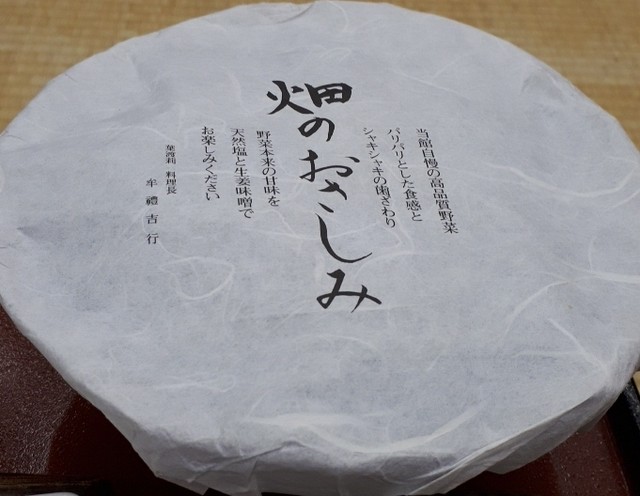 当館自慢の高品質野菜
パリパリとした食感と
シャキシャキの歯ざわり
畑のおさしみ
野菜本来の甘味を
天然塩と生姜味噌で
お楽しみください
葉渡莉 料理長
牟禮吉行